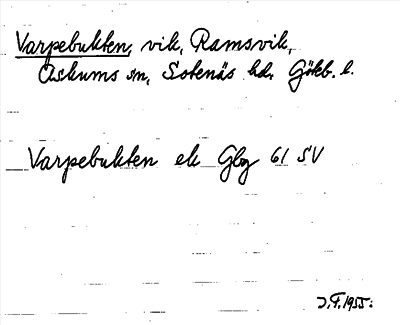 Varpebukten, vik, Ramsvik,
Askums sn, Sotenäs hd. Göteb. l.
Varpebukten ek Gbg 61 SV
J.F. 1955.